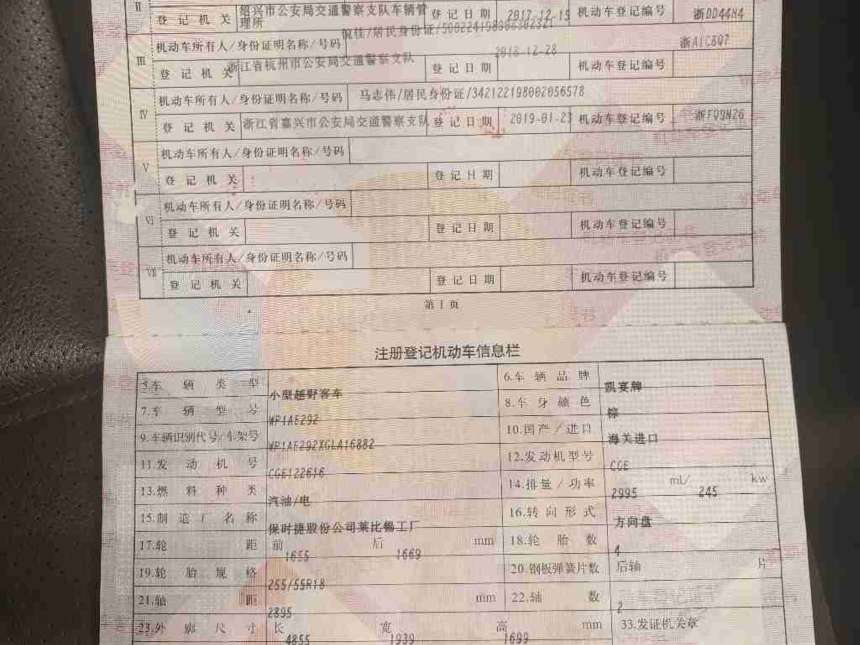 II
绍兴市公安局交通警察支队车辆管理所
登记机关 登记日期 2017-12-15 机动车登记编号 浙DD44H4
III 机动车所有人/身份证明名称/号码
登记机关 浙江省杭州市公安局交通警察支队 登记日期 2018-12-28 机动车登记编号 浙A1C8Q7
IV 机动车所有人/身份证明名称/号码 马志伟/居民身份证/342122198002056578
登记机关 浙江省嘉兴市公安局交通警察支队 登记日期 2019-01-23 机动车登记编号
V 机动车所有人/身份证明名称/号码
登记机关 登记日期 机动车登记编号
VI 机动车所有人/身份证明名称/号码
登记机关 登记日期 机动车登记编号
VII 机动车所有人/身份证明名称/号码
登记机关 登记日期 机动车登记编号
第1页
注册登记机动车信息栏
5.车辆类型 小型越野客车 6.车辆品牌 凯宴牌
7.车辆型号 WP1AE292 8.车身颜色 棕
9.车辆识别代号/车架号 WP1AE292XGLA16882 10.国产/进口 海关进口
11.发动机号 CGE122616 12.发动机型号 CGE
13.燃料种类 汽油/电 14.排量/功率 2995 ml/ 245 kw
15.制造厂名称 保时捷股份公司莱比锡工厂 16.转向形式 方向盘
17.轮距 前 1655 后 1669 mm 18.轮胎数 4
19.轮胎规格 255/55R18 20.钢板弹簧片数 后轴 片
21.轴距 2895 mm 22.轴数 2
23.外廓尺寸 长 4855 宽 1939 高 1699 mm 33.发证机关章